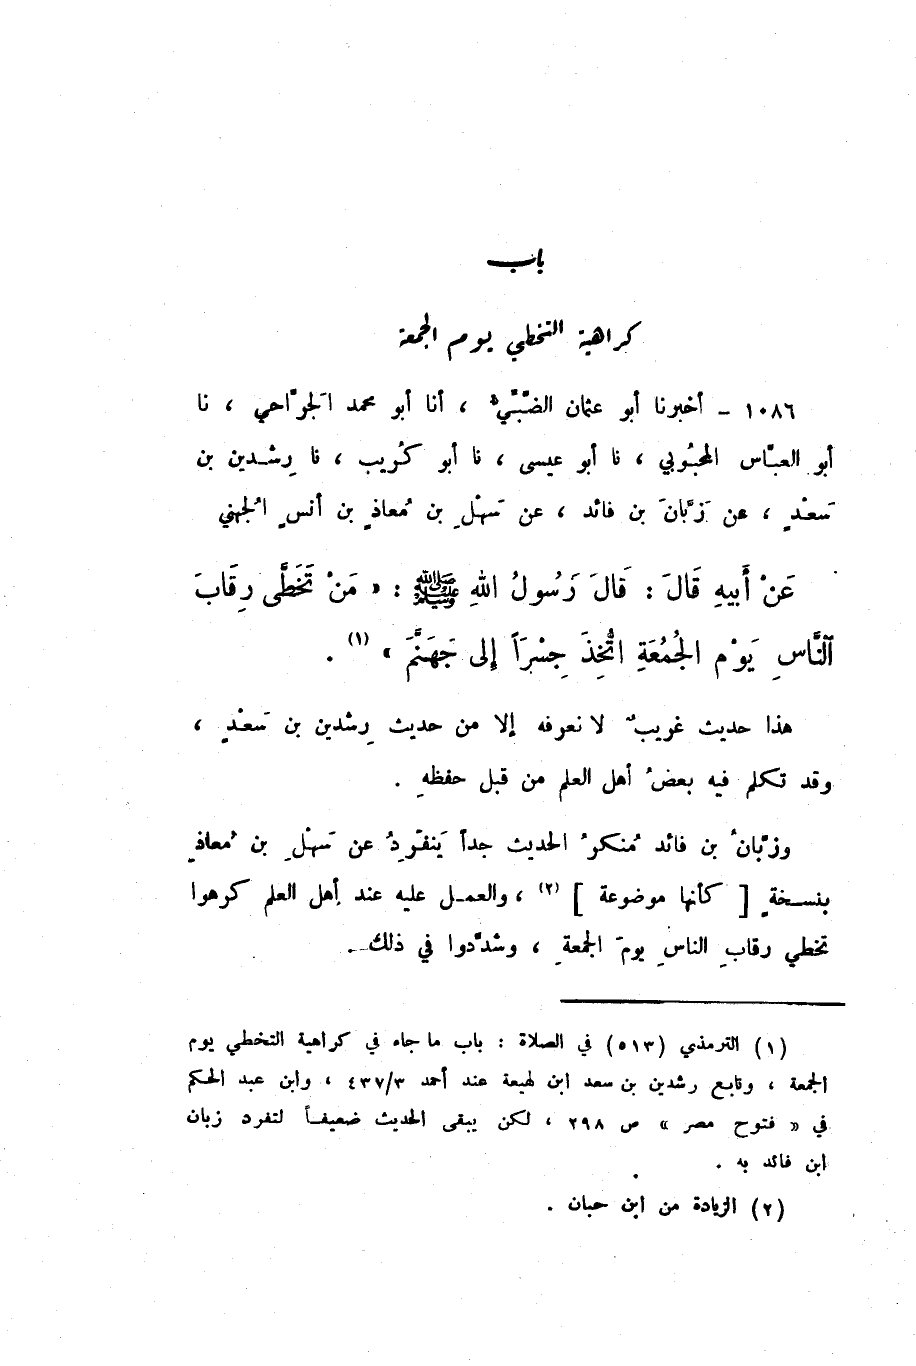 باب
كراهية التخطي يوم الجمعة
١٠٨٦ - أخبرنا أبو عثمان الضَّبِّيُّ ، أنا أبو محمد الجَرَّاحي ، نا
أبو العبَّاس المحبُوبي ، نا أبو عيسى ، نا أبو كُرَيب ، نا رِشدين بن
سَعْدٍ ، عن زَبَّانَ بن فائد ، عن سَهْلِ بن مُعاذِ بن أنسٍ الُجهني
عَنْ أَبيهِ قَالَ : قَالَ رَسُولُ اللهِ ﷺ : « مَنْ تَخَطَّى رِقَابَ
النَّاسِ يَوْم الجُمُعَةِ اتُّخِذَ جِسْرَاً إِلى جَهَنَّمَ » (١) .
هذا حديث غريبٌ لا نعرفه إلا من حديث رِشدين بن سَعْدٍ ،
وقد تكلم فيه بعضُ أهل العلم من قبل حفظهِ .
وزبَّانُ بن فائد مُنكرُ الحديث جداً يَنفَرِدُ عن سَهْلِ بن مُعاذٍ
بنسخةٍ [ كأنها موضوعة ] (٢) ، والعمل عليه عند أهل العلم كرهوا
تخطي رقابِ الناسِ يومَ الجمعةِ ، وشدَّدوا في ذلك .
(١) الترمذي (٥١٣) في الصلاة : باب ما جاء في كراهية التخطي يوم
الجمعة ، وتابع رشدين بن سعد ابن لهيعة عند أحمد ٤٣٧/٣ ، وابن عبد الحكم
في « فتوح مصر » ص ٢٩٨ ، لكن يبقى الحديث ضعيفاً لتفرد زبان
ابن فائد به .
(٢) الزيادة من ابن حبان .